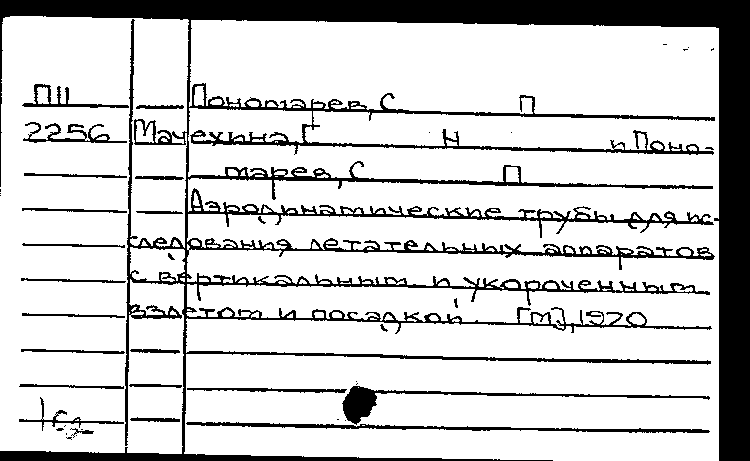 ПII Пономарев, С П
2256 Мачехина, Г Н и Поно-
марев, С П
Аэродинамические трубы для ис-
следования летательных аппаратов
с вертикальным и укороченным
взлетом и посадкой. [М], 1970